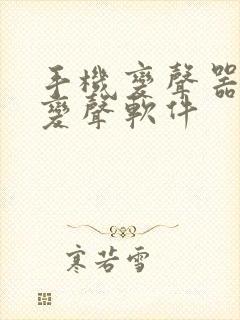 手機變聲器
變聲軟件
寒若雪